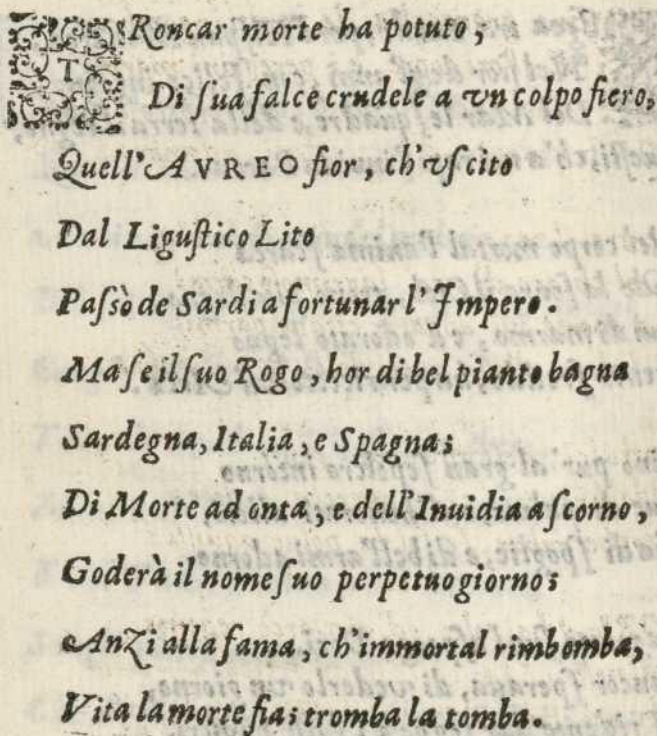 TRoncar morte ha potuto,
Di ſua falce crudele a vn colpo fiero,
Quell'AVREO fior, ch'vſcito
Dal Liguſtico Lito
Paſsò de Sardi a fortunar l'Impero.
Ma ſe il ſuo Rogo, hor di bel pianto bagna
Sardegna, Italia, e Spagna;
Di Morte ad onta, e dell'Inuidia a ſcorno,
Goderà il nome ſuo perpetuo giorno;
Anzi alla fama, ch'immortal rimbomba,
Vita la morte fia; tromba la tomba.